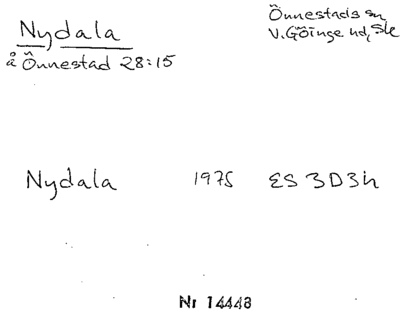 Nydala
å Önnestad 28:15
Önnestads sn
V. Göinge hd, Sk
Nydala 1975 ES 3D3h
Nr 14448